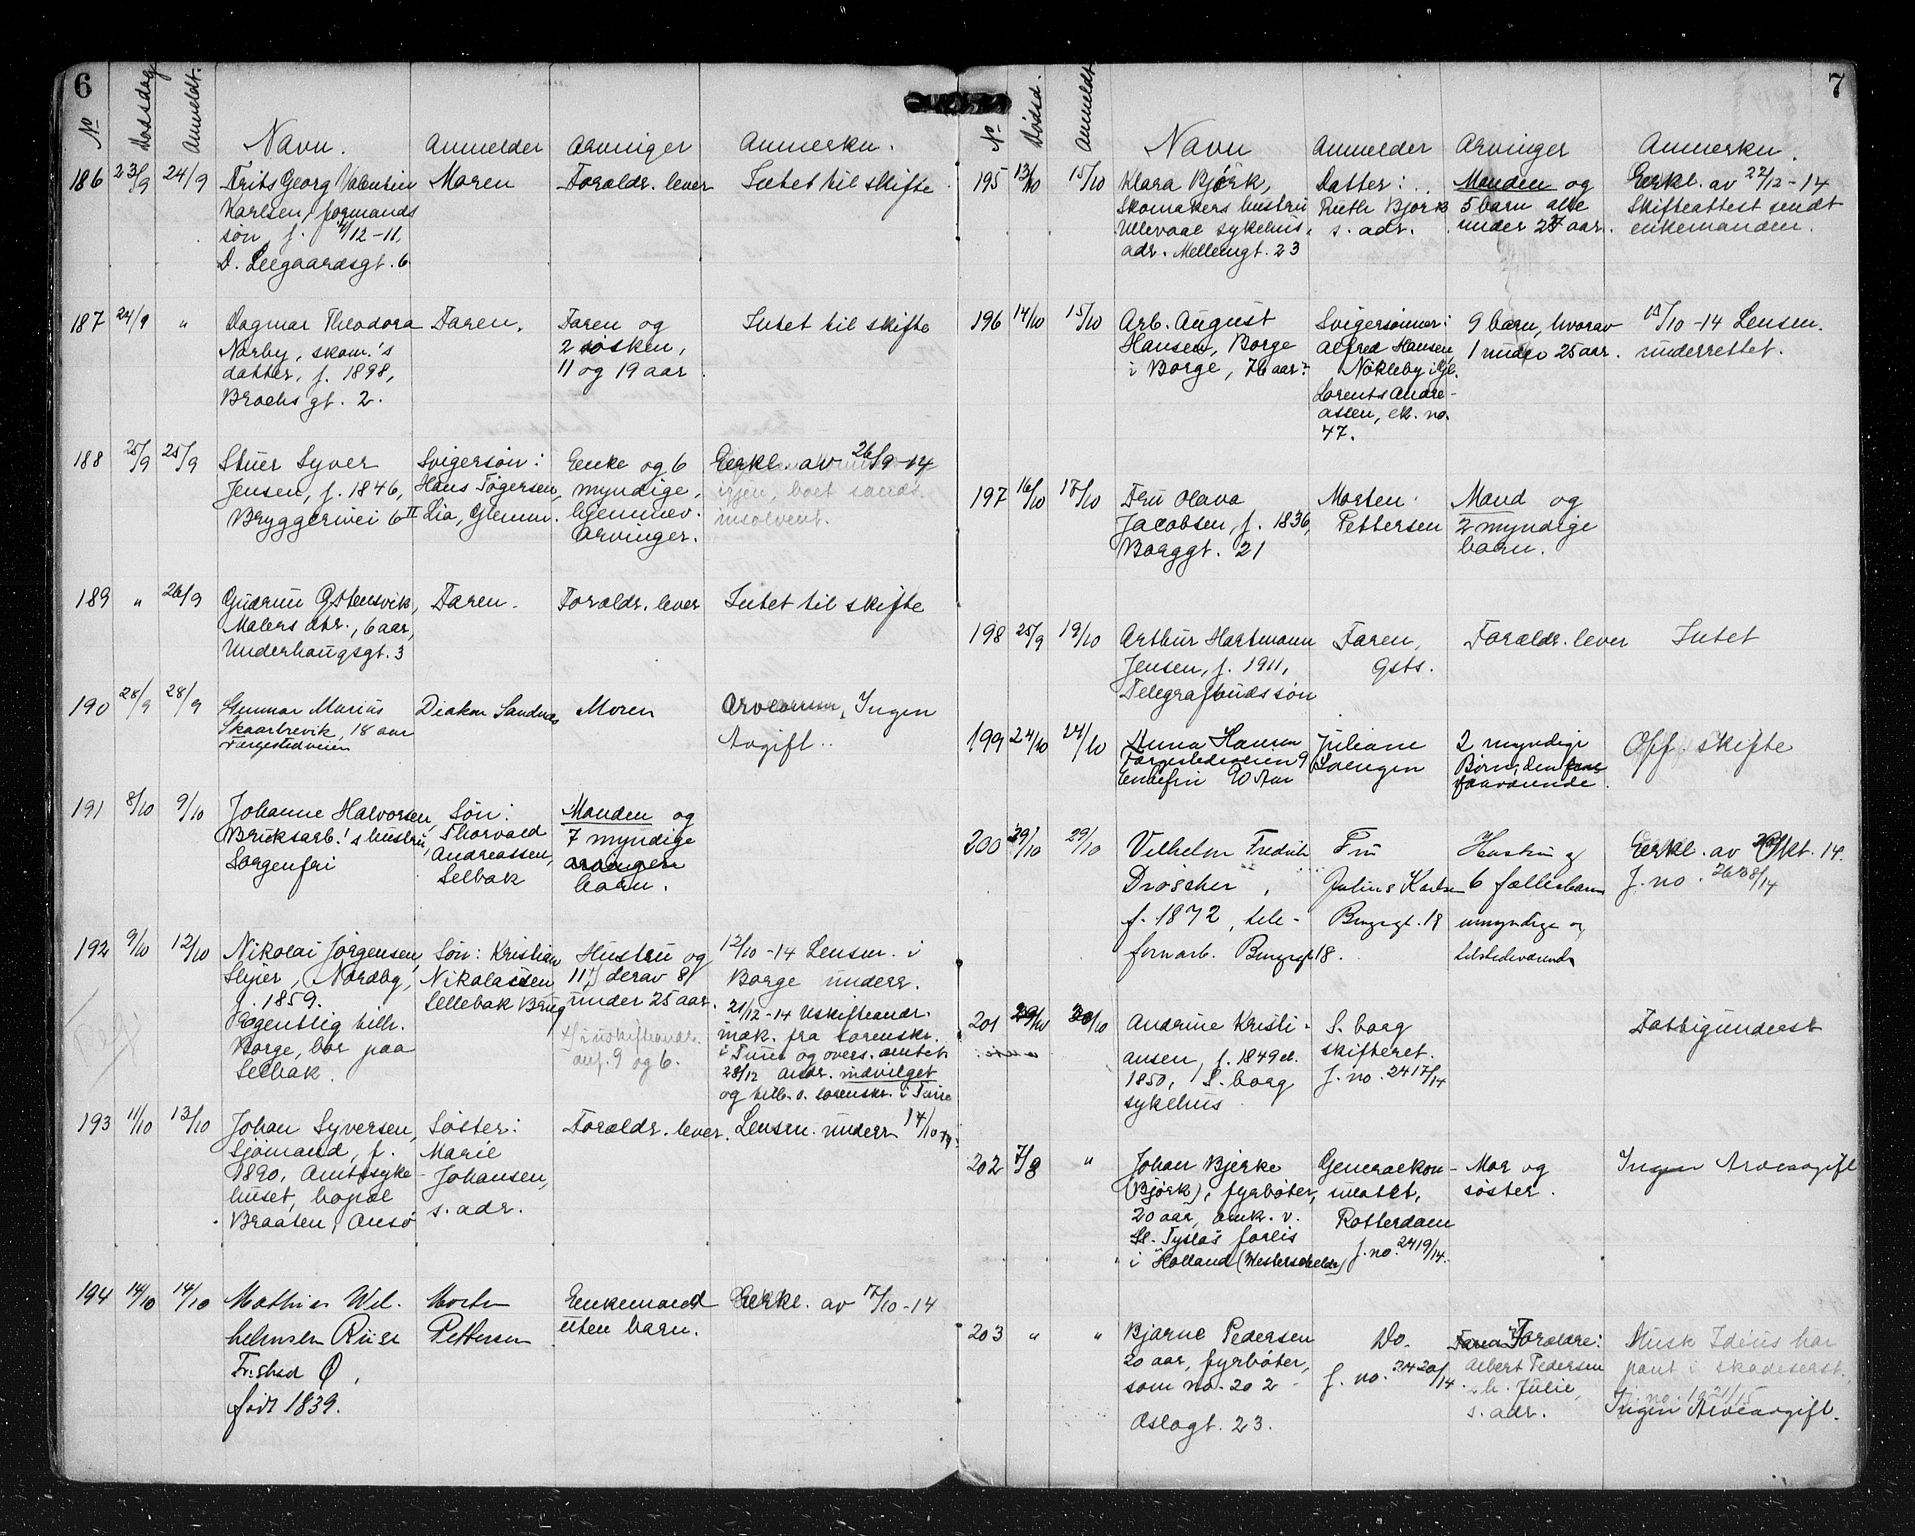 6
No Dødsdag Anmeldt. Navn. Anmelder Arvinger Anmerkn.
186 23/9 24/9 Frits Georg Valentin Moren Forældr. lever Intet til skifte
Karlsen, formands
søn, f. /12-11,
D. Leegaardsgt. 6
187 24/9 " Dagmar Theodora Faren. Faren og Intet til skifte
Norby, skom.'s 2 søsken,
datter, f. 1898, 11 og 19 aar.
Brochs gt. 2.
188 25/9 25/9 Stuer Syver Svigersøn: Enke og 6 Eerkl. av 26/9-14
Jensen, f. 1846, Hans Tøgersen, myndige, boet
Bryggerivei 6 II Lia, Glemm. hjemmev. insolvent.
Arvinger.
189 " 26/9 Gudrun Østensvik, Faren. Forældr. lever Intet til skifte
Malers dtr., 6 aar,
Underhaugsgt. 3
190 28/9 28/9 Gunnar Marius Diakon Sandnæs Moren Ingen
Skaarbrevik, 18 aar Avgift..
Færgestedveien
191 8/10 9/10 Johanne Halvorsen, Søn: Manden og
Bruksarb.'s hustru, Thorvald 7 myndige
Sorgenfri Andreassen, arvinger
Selbak barn.
192 9/10 12/10 Nikolai Jørgensen, Søn: Kristian Hustru og 12/10-14 Lensm. i
Nordby, Nikolaisen 11 derav 8 Borge underr.
f. 1859. Sellebak Brug under 25 aar. 21/12-14 Uskifteandr.
Egentlig tilh. mak. fra sorenskr.
Borge, bor paa anf. 9 og 6. i Tune og overs. amtet.
Selbak. 28/12 Andr. indvilget
og tilb. s. sorenskr. i Tune
193 11/10 13/10 Johan Syversen, Søster: Forældr. lever. Lensm. underr. 14/10 14.
Sjømand, f. Marie
1890, Amtssyke- Johansen,
huset, bopæl s. adr.
Braaten, Ansø
194 14/10 14/10 Mathias Wil- Morten Enkemand Eerkl. av 17/10-14
helmsen Riise Pettersen uten barn.
Fr.stad Ø,
født 1839.
7
No Dødsd. Anmeldt Navn Anmelder Arvinger Anmerkn.
195 13/10 15/10 Klara Bjørk, Datter: Manden og Eerkl. av 22/12-14
Skomakers hustru Ruth Bjørk 5 barn alle Skifteattest sendt
Ullevaal sykehus, s. adr. under 23 aar. enkemanden.
adr. Mellemgt. 23
196 14/10 15/10 Arb. August Svigersønner: 9 barn, hvorav 15/10-14 Lensm.
Hansen, Borge Alfred Hansen, 1 under 25 aar. underrettet.
i Borge, 76 aar? Nøkleby i Gl.
Lorents Andre-
assen, ek. no.
47.
197 16/10 17/10 Fru Olava Morten Mand og
Jacobsen, f. 1836, Pettersen 2 myndige
Borggt. 21 barn.
198 25/9 19/10 Arthur Hartmann Faren, Forældr. lever Intet
Jensen, f. 1911, Gsts.
Telegrafbudssøn
199 24/10 24/10 Anna Hansen Juliane 2 myndige Off. skifte
Færgestedveien 9 Soengen Børn, den
Enkefru 90 Aar fraværende.
200 29/10 29/10 Vilhelm Fredrik Fru Hustru og Eerkl. av Okt. 14.
Drøscher, Julius Karlsen 6 fællesbarn J. no. 2638/14
f. 1872, tele- Bingsgt. 18 umyndige og
fonarb. Bingsgt 18. tilstedeværende
201 29/10 30/10 Andrine Kristi- S. borg Fattigunderst
ansen, f. 1849 el. skifteret.
1850, S. borg J. no. 2417/14
sykehus
202 7/8 " Johan Bjerke Generalkon- Mor og Ingen Arveavgift
(Bjørk), fyrbøter, sulatet, søster.
20 aar, omk. v. Rotterdam
"Tyslas" forlis J. no. 2419/14.
i Holland (Westerschelde)
203 " " Bjarne Pedersen Do. Forældre: Musk Ideus har
20 aar, fyrbøter, J. no. 2420/14. Albert Pedersen pant i skadeserst.
som no. 202 h. Julie, J. no. 1921/15
Oslogt. 23. s. adr. Ingen Arveavgift.